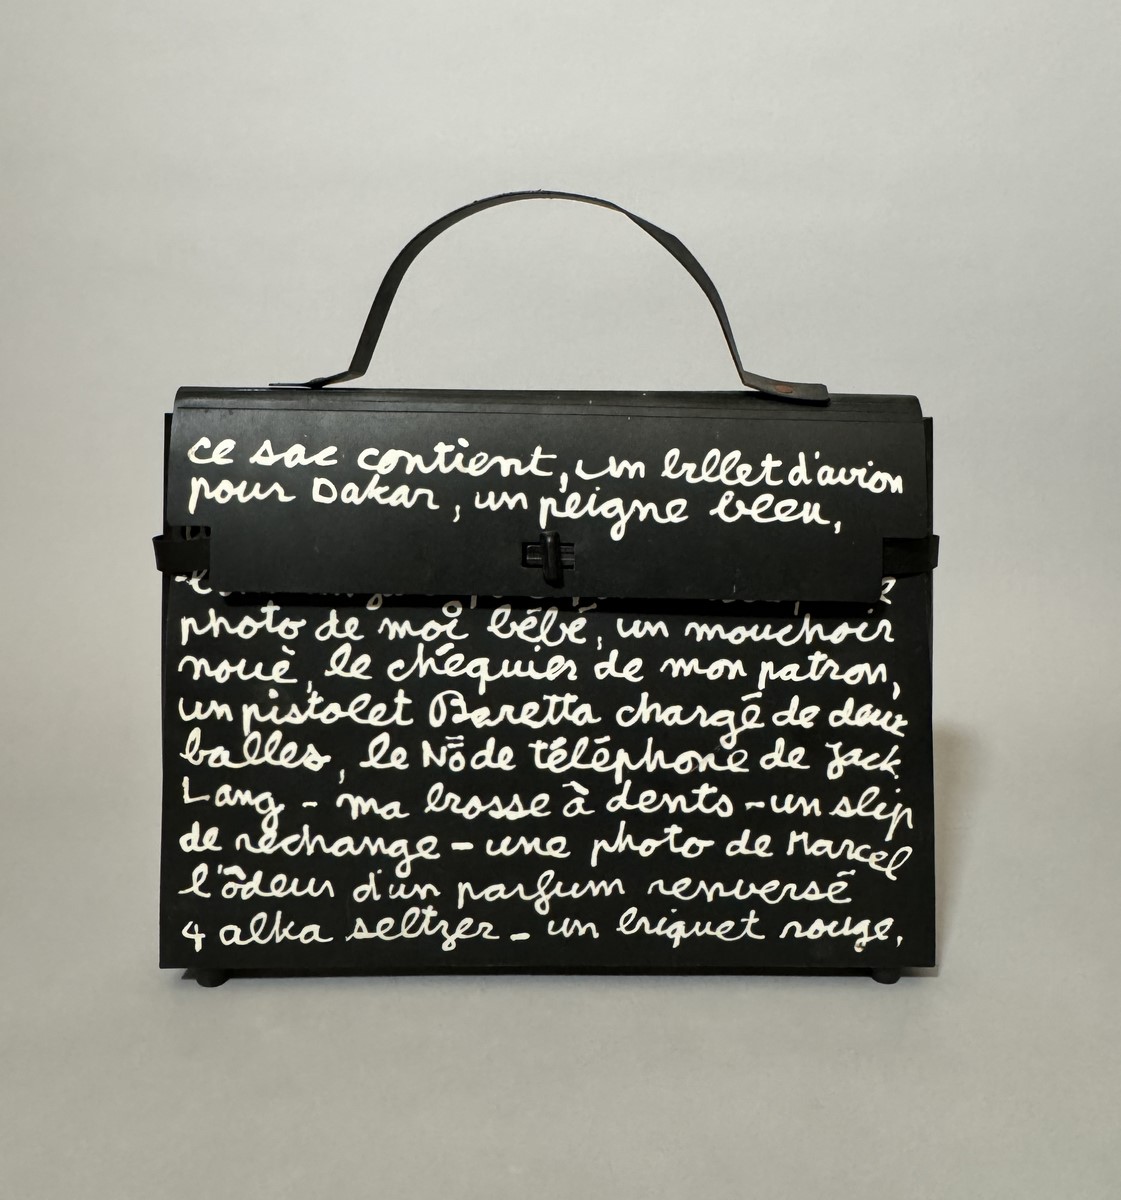 ce sac contient, un billet d'avion
pour Dakar, un peigne bleu,
photo de moi bébé, un mouchoir
noué, le chéquier de mon patron,
un pistolet Baretta chargé de deux
balles, le No de téléphone de Jack
Lang - ma brosse à dents - un slip
de rechange - une photo de Marcel
l'ôdeur d'un parfum renversé
4 alka seltzer - un briquet rouge,